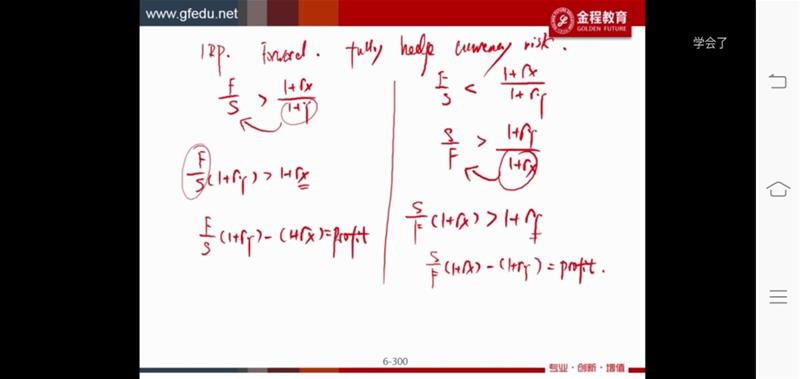 www.gfedu.net
金程教育
GOLDEN FUTURE
学会了
IRP. Forward. fully hedge currency risk.
F/S > (1+rx)/(1+ry)
F/S (1+ry) > 1+rx
F/S (1+ry) - (1+rx) = profit
F/S < (1+rx)/(1+ry)
S/F > (1+ry)/(1+rx)
S/F (1+rx) > 1+ry
S/F (1+rx) - (1+ry) = profit.
6-300
专业·创新·增值